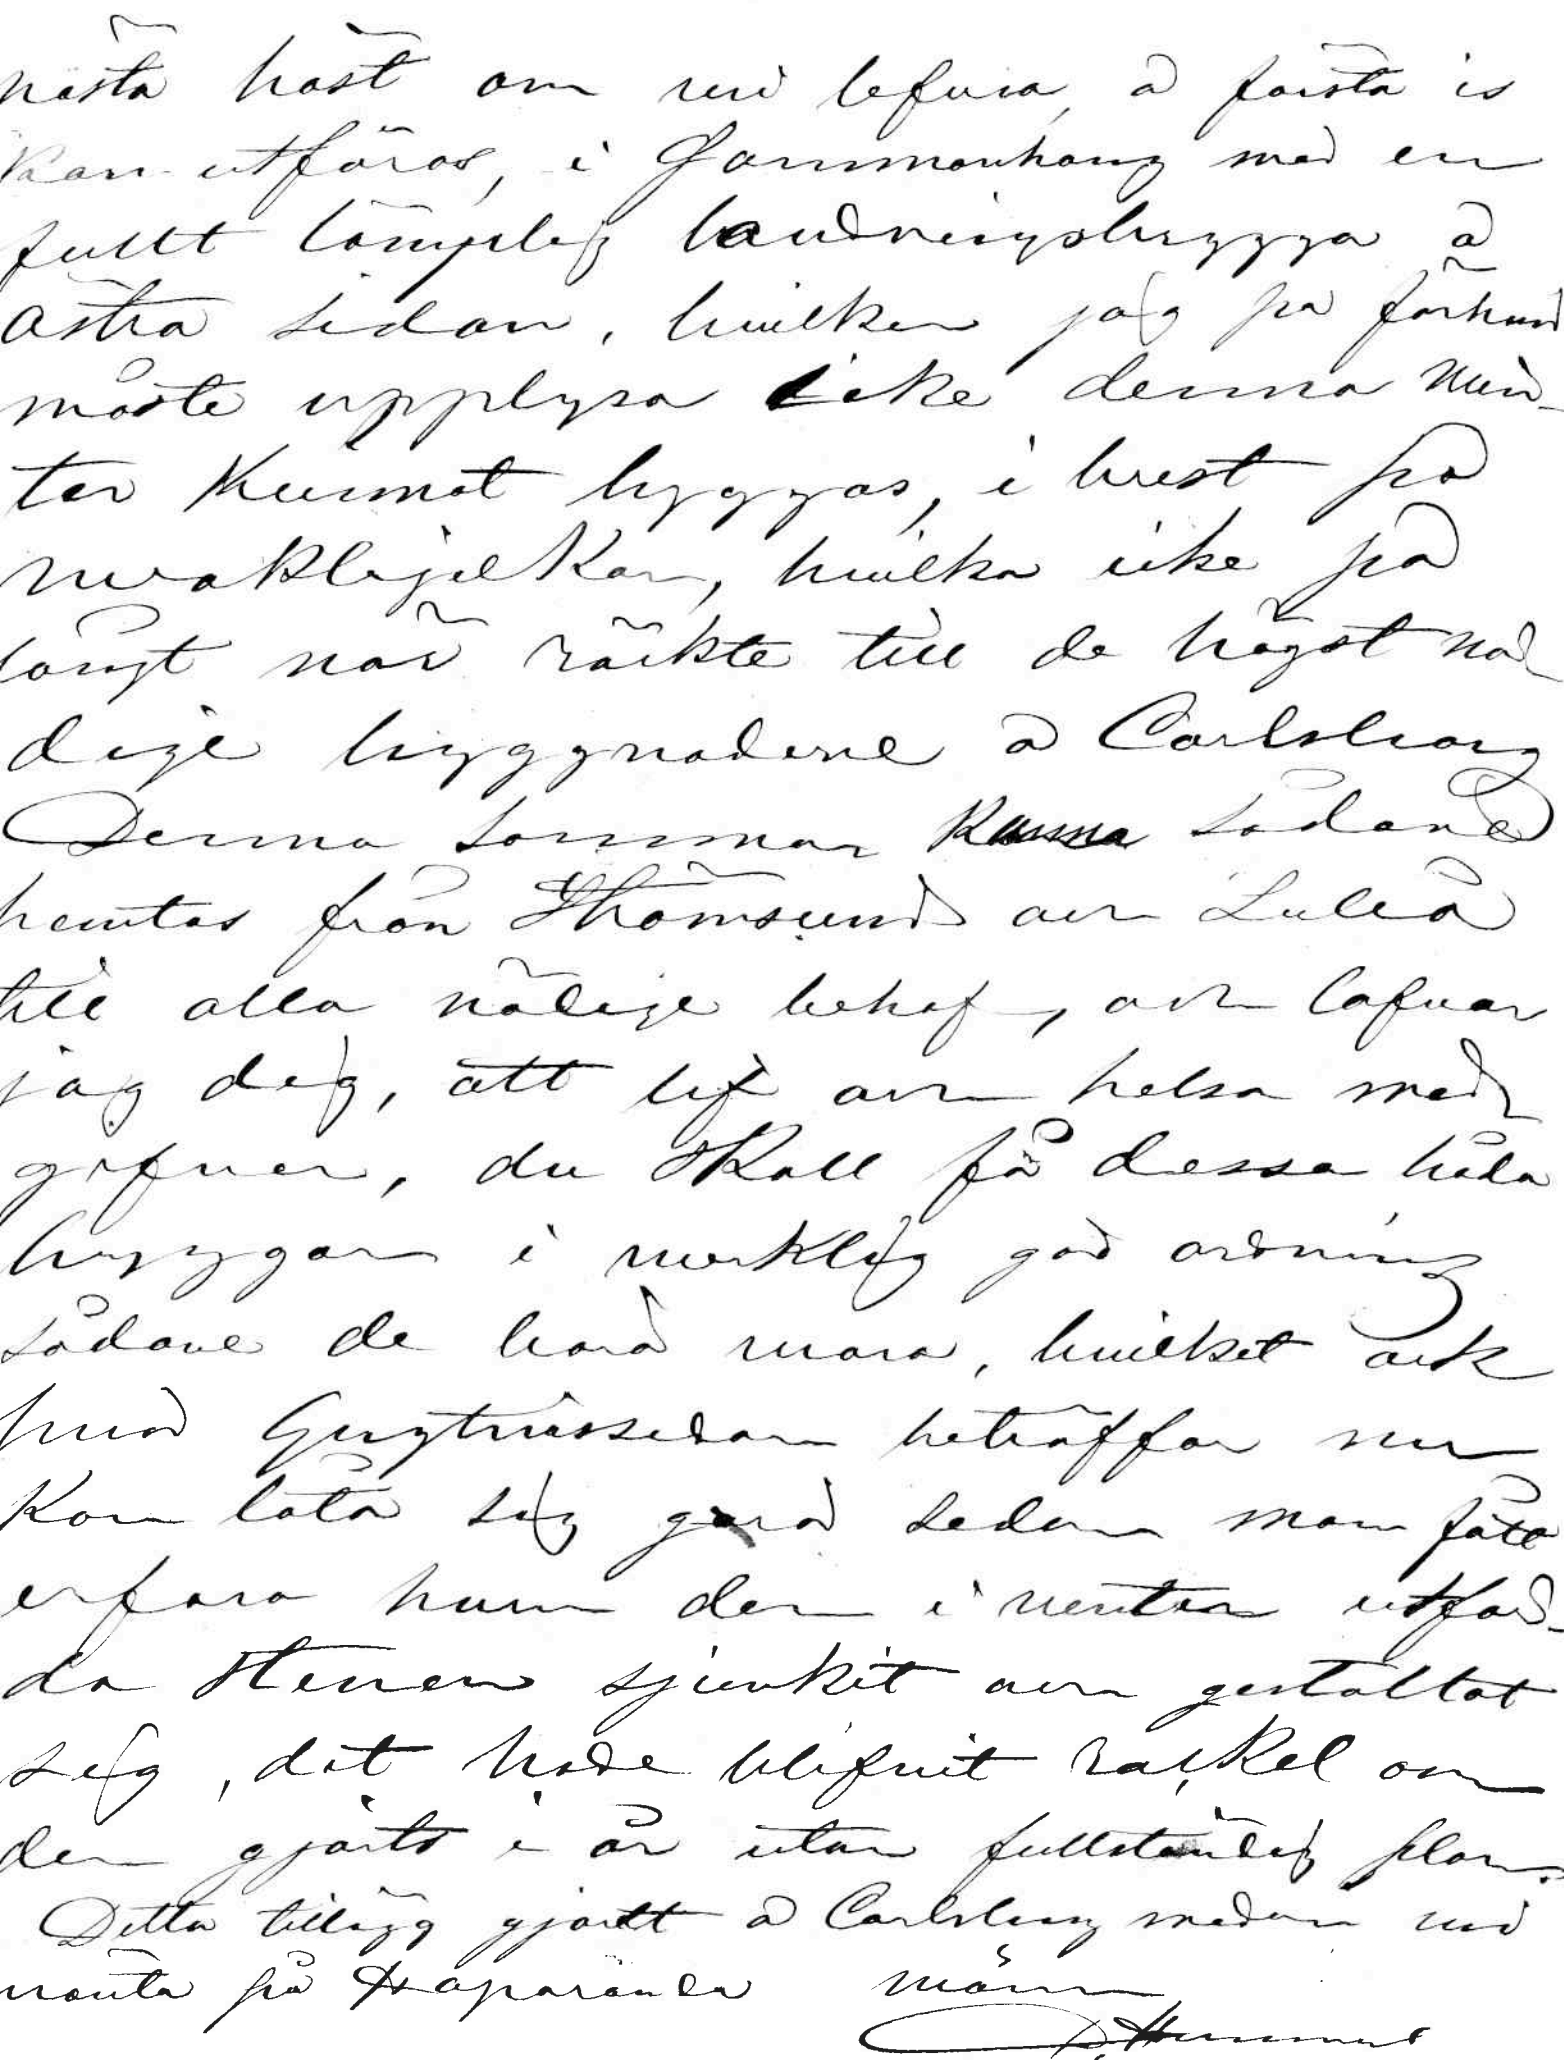 nästa höst om vi lefva, å första is
kan utföras, i Sammanhang med en
fullt lämplig landningsbrygga å
östra sidan, hvilken jag på förhand
måste upplysa icke denna vin-
ter kunnat byggas, i brist på
hvilka icke på
långt när räckte till de högst nö-
dige byggnaderne å Carlsborg
Denna sommar kunna sådane
hemtas från Strömsund och Luleå
till alla nödige behof, och lofvar
jag dig, att lif och helsa med-
gifver, du skall få dessa båda
bryggor i verklig god ordning
sådane de böra vara, hvilket ock
hvad beträffar nu
kan låta sig göra sedan man fått
erfara huru den i vinter utförd-
da stenen sjunkit och gestaltat
sig, det hade blifvit rackel om
den gjorts i år utan fullständig plan.
Detta tillägg gjordt å Carlsborg medan vi
vänta på Haparanda männ